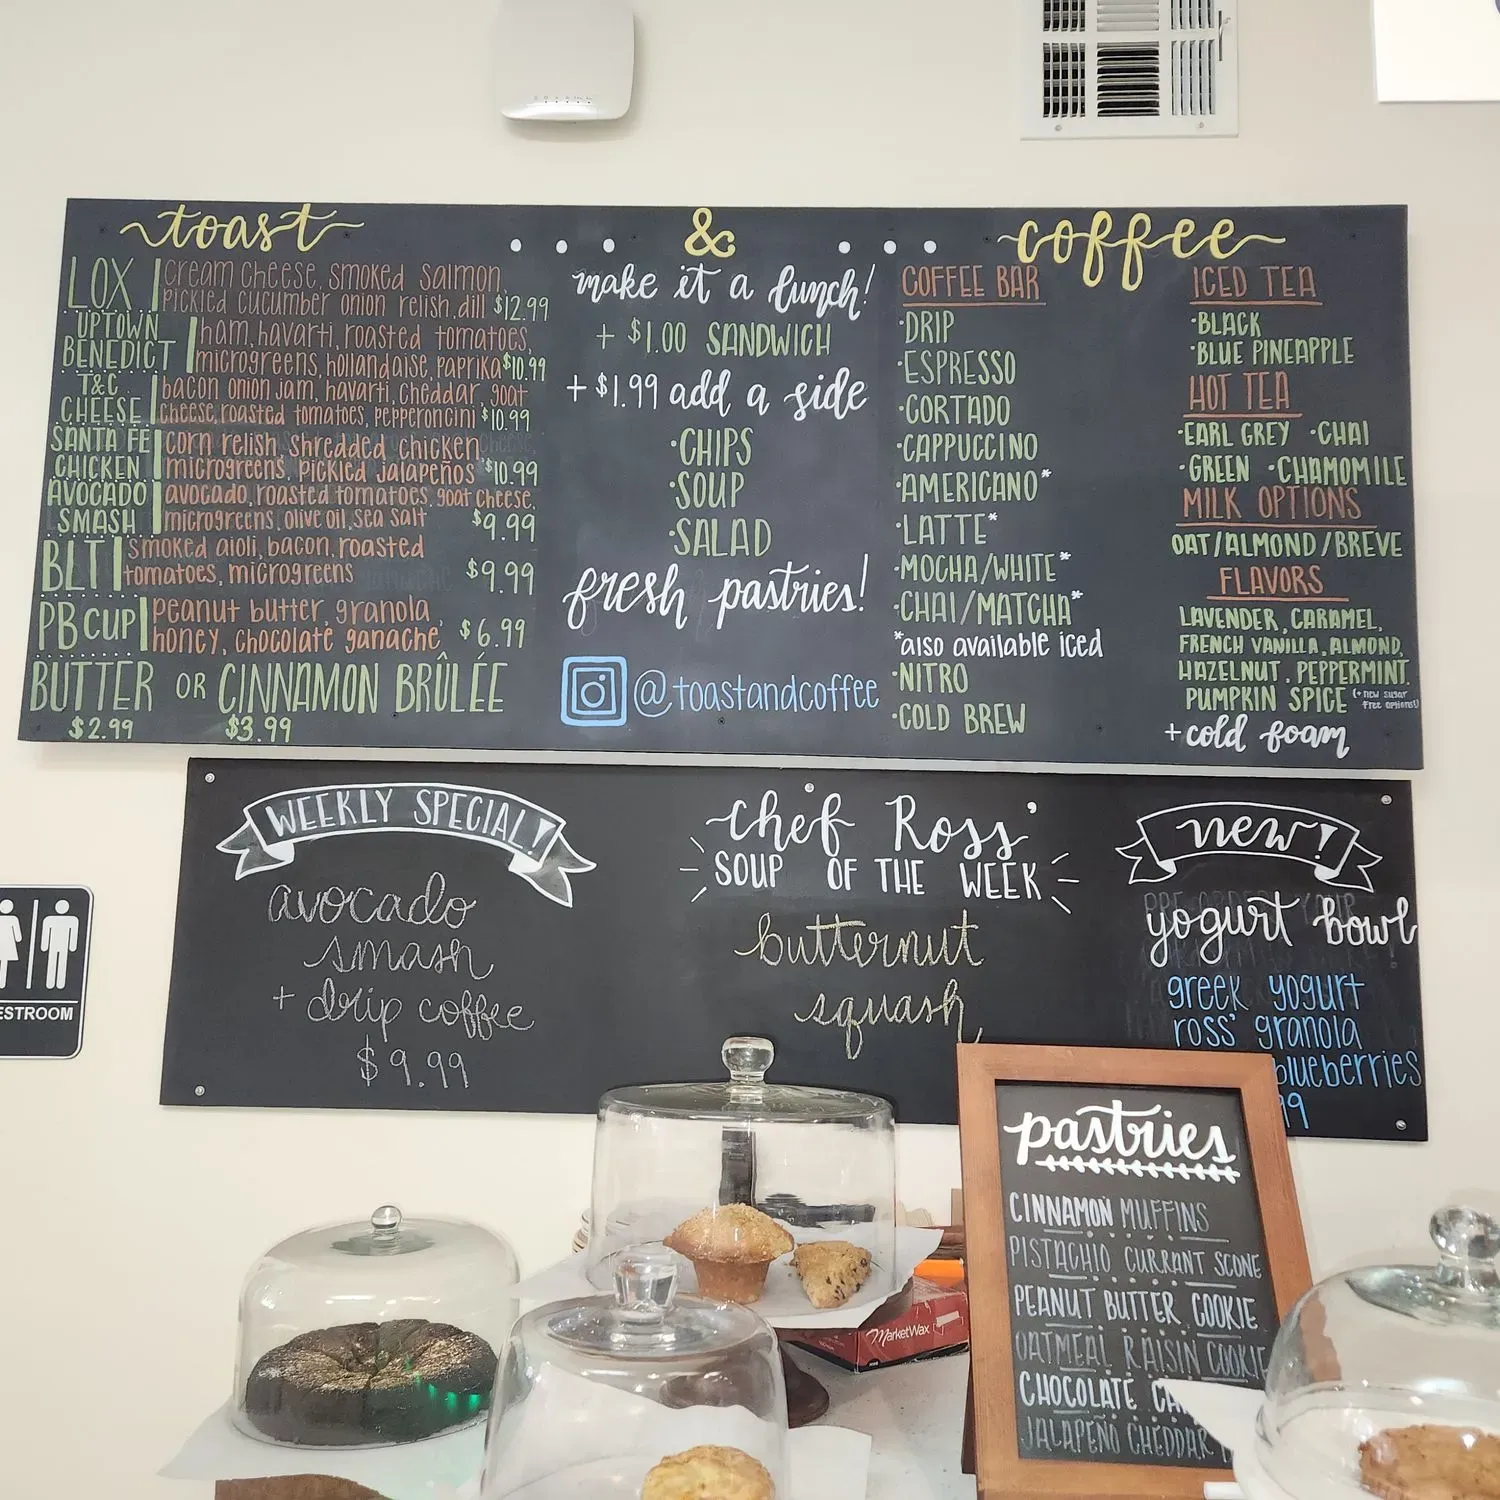 toast
LOX
cream cheese, smoked salmon,
pickled cucumber onion relish, dill $12.99
UPTOWN
BENEDICT
ham, havarti, roasted tomatoes,
microgreens, hollandaise, paprika $10.99
T&C
CHEESE
bacon onion jam, havarti, cheddar, goat
cheese, roasted tomatoes, pepperoncini $10.99
SANTA FE
CHICKEN
corn relish, shredded chicken
microgreens, pickled jalapeños $10.99
AVOCADO
SMASH
avocado, roasted tomatoes, goat cheese,
microgreens, olive oil, sea salt
$9.99
BLT
smoked aioli, bacon, roasted
tomatoes, microgreens
$9.99
PB CUP
peanut butter, granola,
honey, chocolate ganache
$6.99
BUTTER OR CINNAMON BRÛLÉE
$2.99 $3.99
&
make it a lunch!
+ $1.00 SANDWICH
+ $1.99 add a side
·CHIPS
·SOUP
·SALAD
fresh pastries!
@toastandcoffee
coffee
COFFEE BAR
·DRIP
·ESPRESSO
·CORTADO
·CAPPUCCINO
·AMERICANO*
·LATTE*
·MOCHA/WHITE*
·CHAI/MATCHA*
*also available iced
·NITRO
·COLD BREW
ICED TEA
·BLACK
·BLUE PINEAPPLE
HOT TEA
·EARL GREY ·CHAI
·GREEN ·CHAMOMILE
MILK OPTIONS
OAT/ALMOND/BREVE
FLAVORS
LAVENDER, CARAMEL,
FRENCH VANILLA, ALMOND,
HAZELNUT, PEPPERMINT,
PUMPKIN SPICE (+ new sugar
free options!)
+ cold foam
WEEKLY SPECIAL!
avocado
smash
+ drip coffee
$9.99
chef Ross'
SOUP OF THE WEEK
butternut
squash
new!
yogurt bowl
greek yogurt
ross' granola
blueberries
99
ESTROOM
MarketWax
pastries
CINNAMON MUFFINS
PISTACHIO CURRANT SCONE
PEANUT BUTTER COOKIE
OATMEAL RAISIN COOKIE
CHOCOLATE
JALAPEÑO CHEDDAR